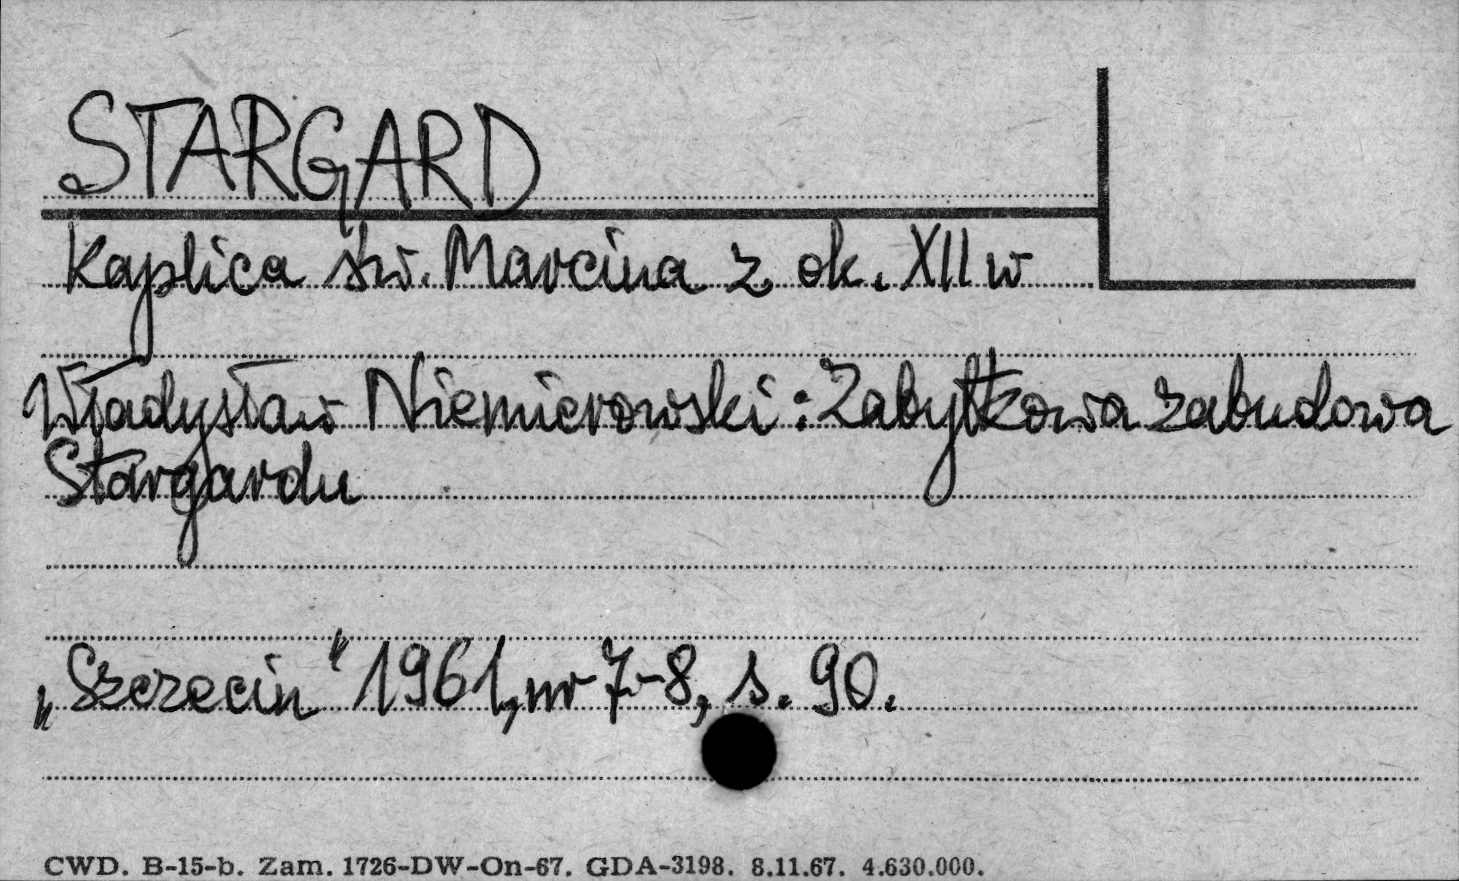 STARGARD
Kaplica św. Marcina z ok. XII w
Władysław Niemierowski: Zabytkowa zabudowa
Stargardu
„Szczecin" 1961, nr 7-8, s. 90.
CWD. B-15-b. Zam. 1726-DW-On-67. GDA-3198. 8.11.67. 4.630.000.